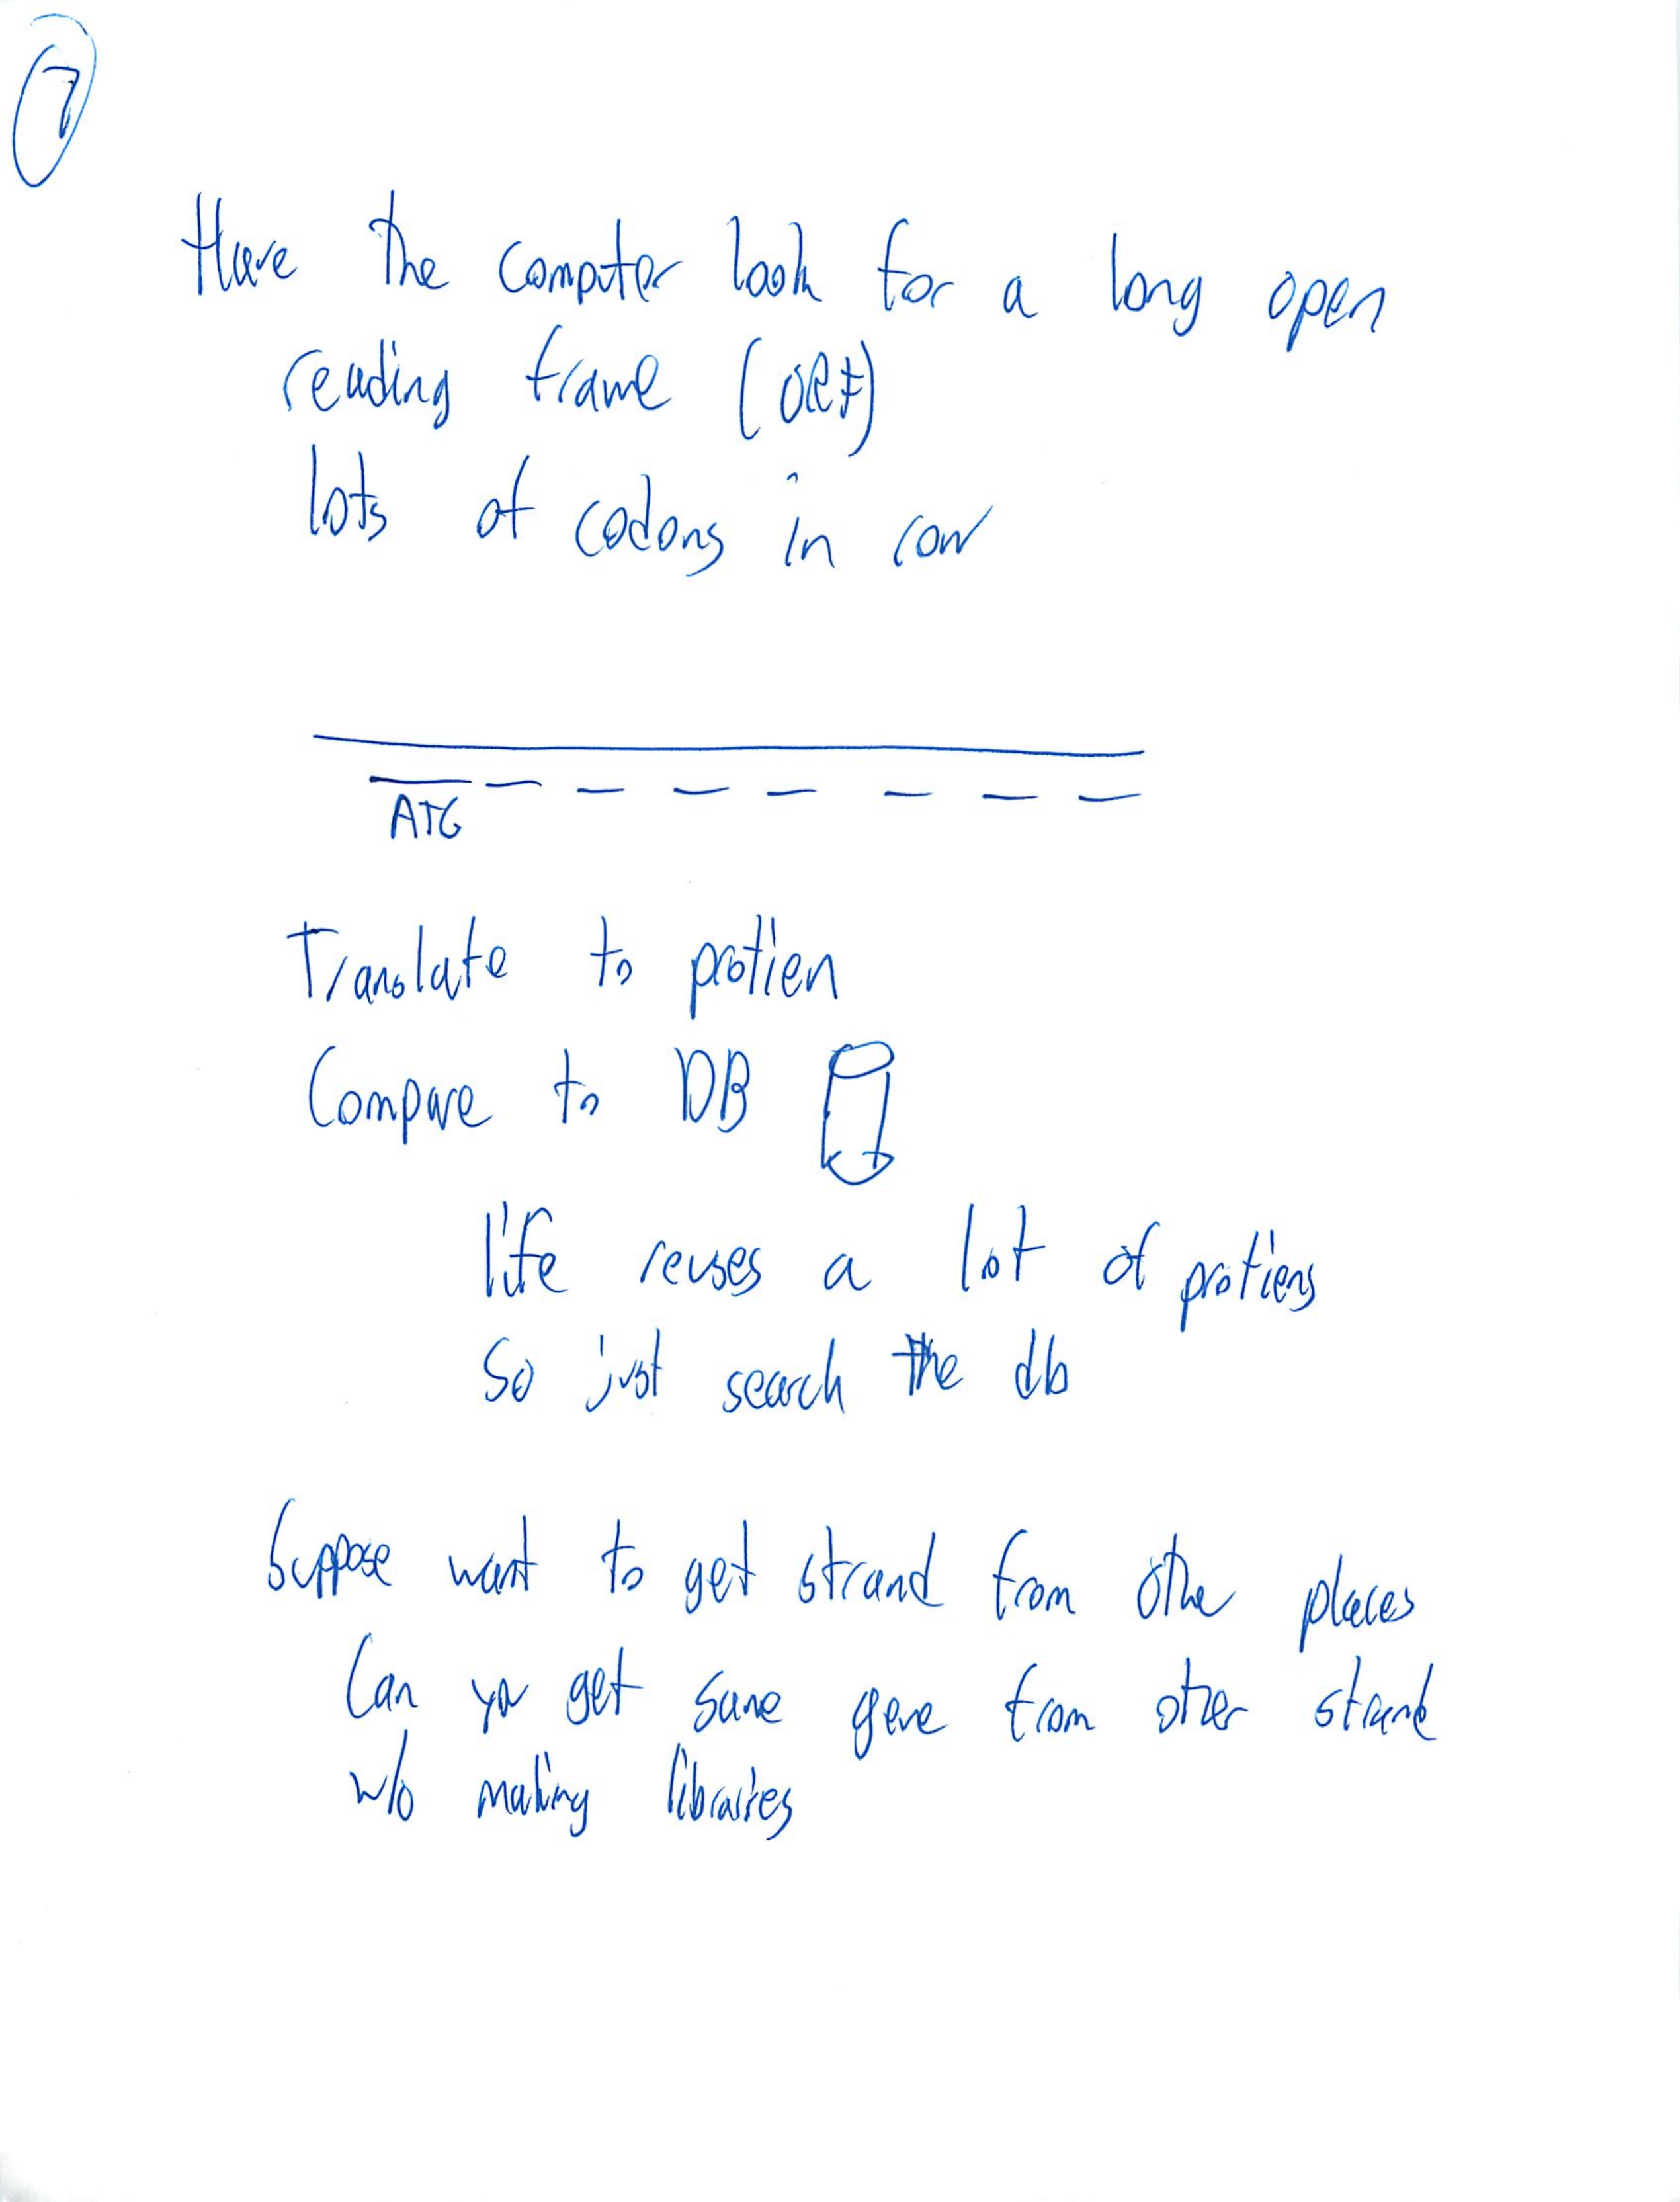 7
Have the computer look for a long open
reading frame (ORF)
lots of codons in row
ATG
Translate to protien
Compare to DB
life reuses a lot of protiens
so just search the db
Suppose want to get strand from othe places
Can you get same gene from other strand
w/o making libraries